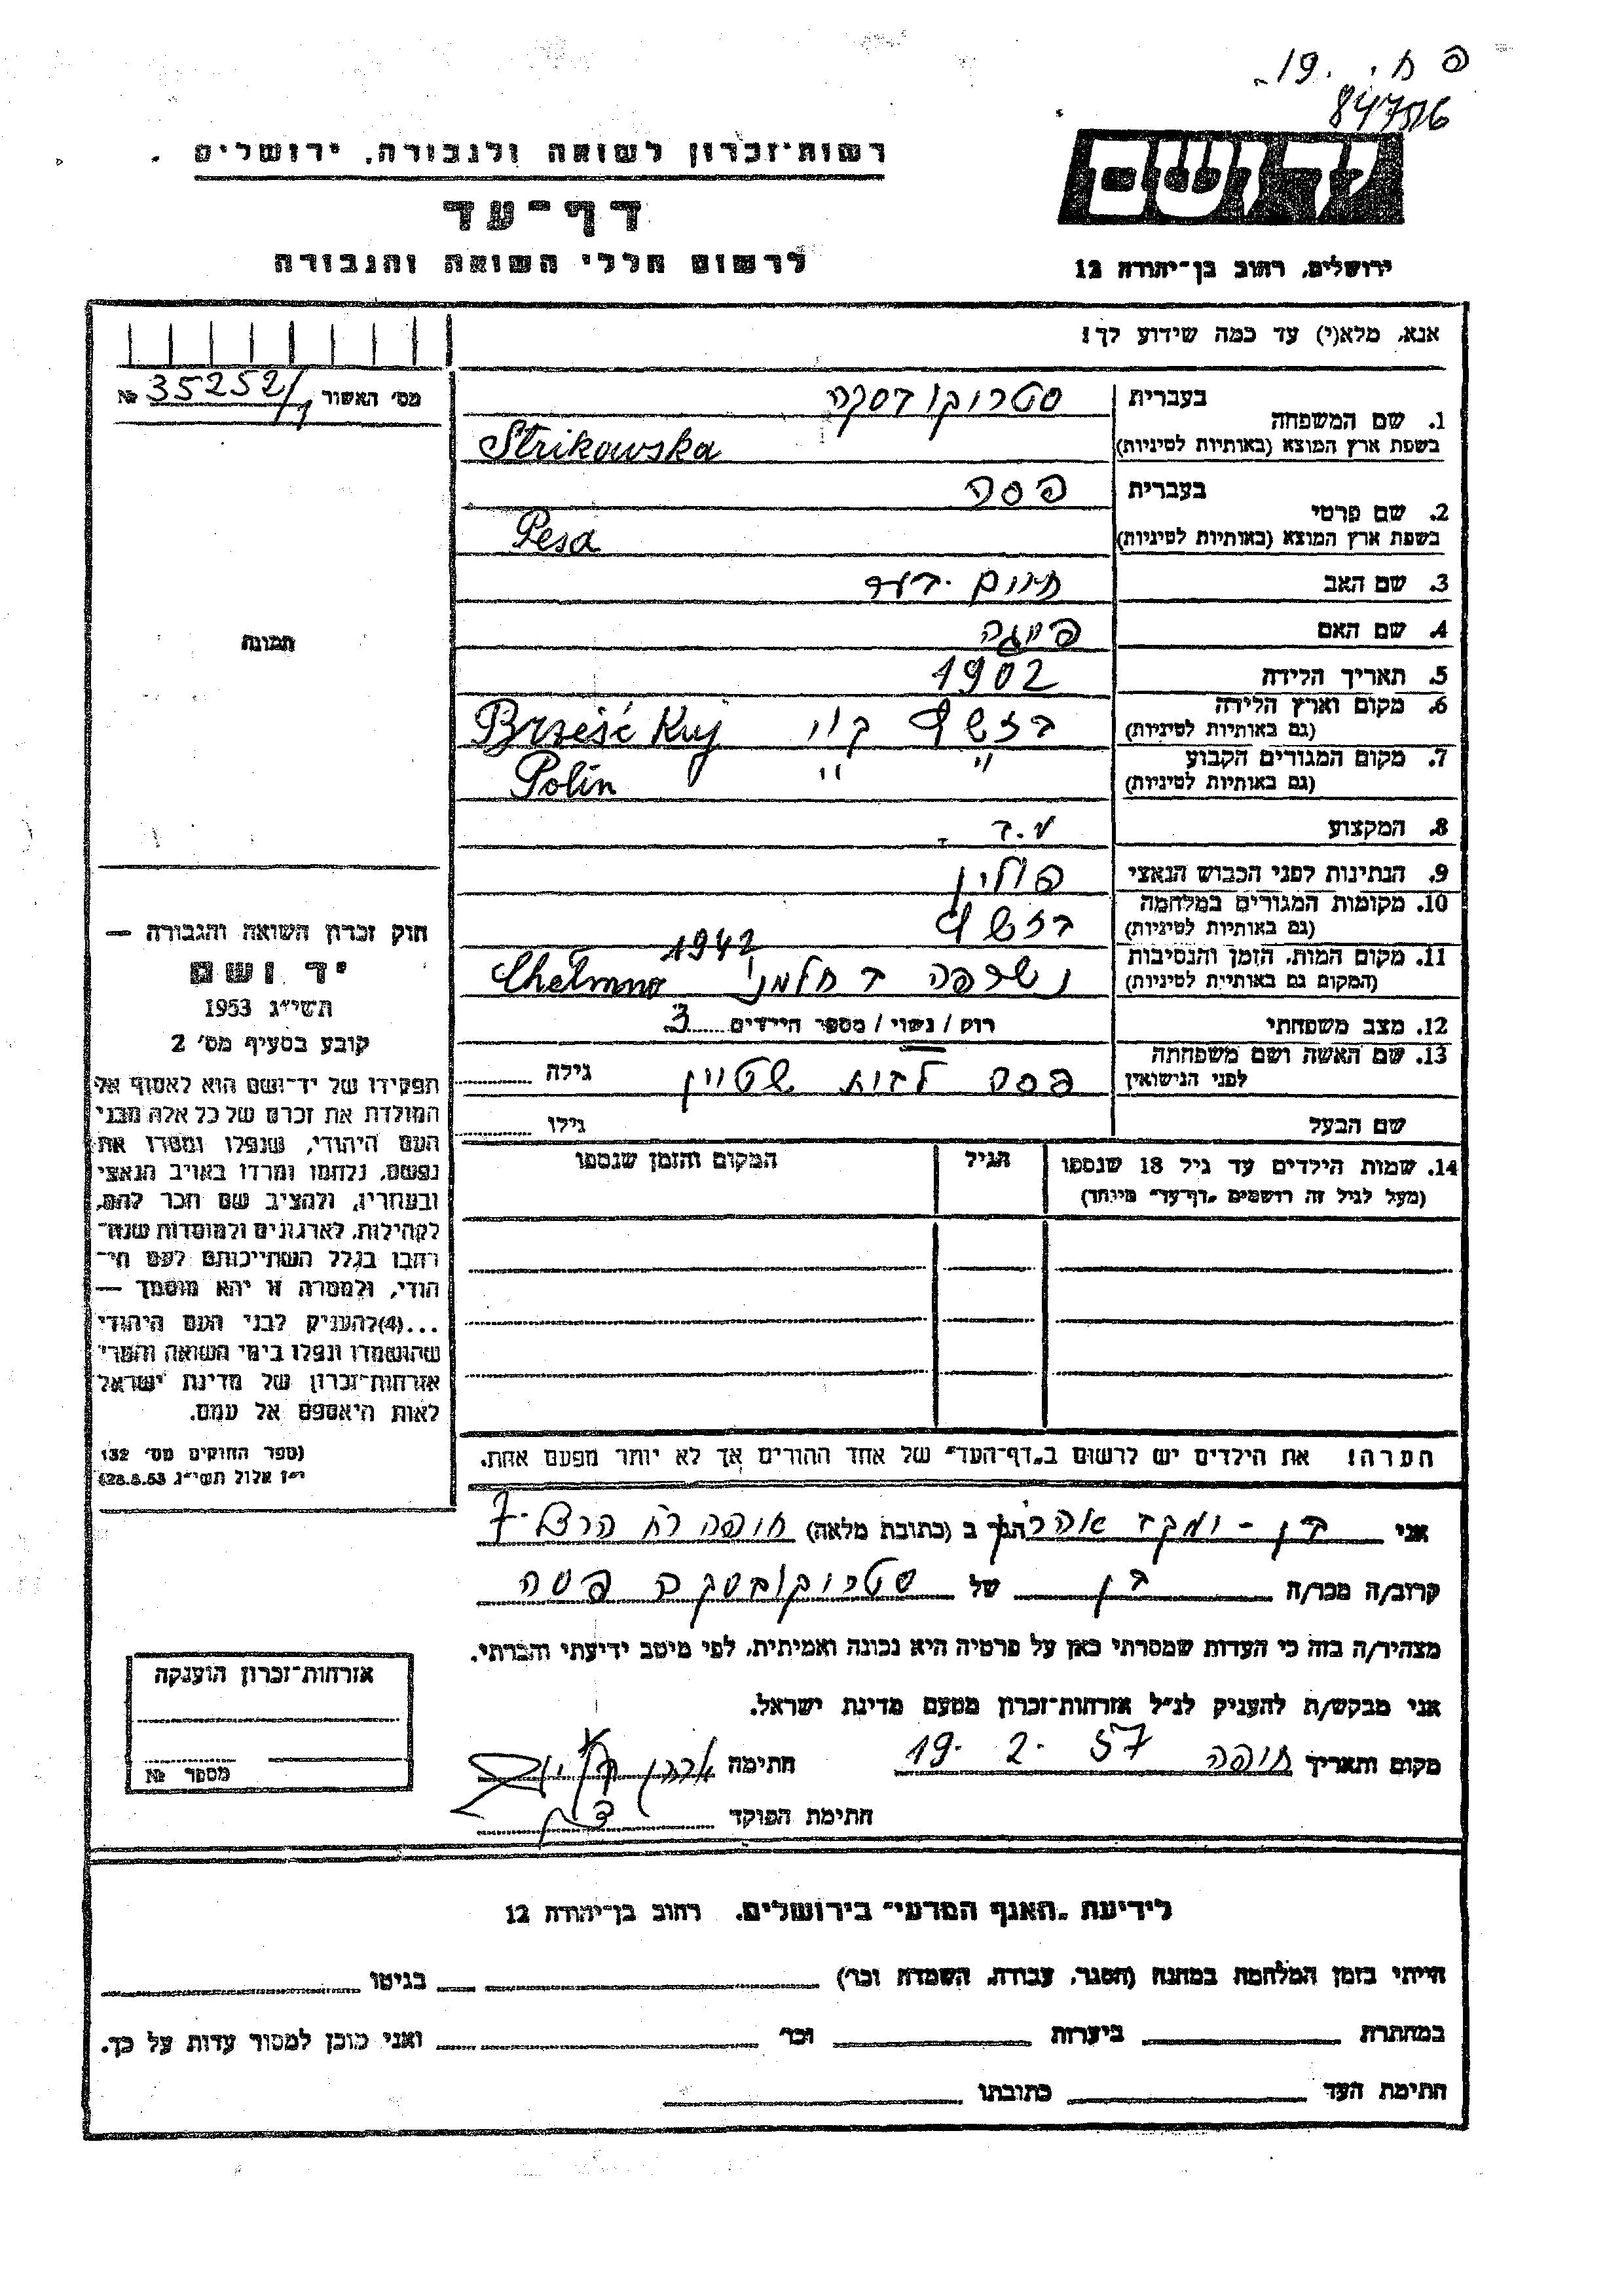 פ ח. 19.
84756
ידושם
ירושלים, רחוב בן־יהודה 12
רשות־זכרון לשואה ולגבורה, ירושלים
דף־עד
לרשום חללי השואה והגבורה
אנא, מלא(י) עד כמה שידוע לך!
מס׳ האשור 35252/1 №
1. שם המשפחה
בעברית סטריקובסקה
בשפת ארץ המוצא (באותיות לטיניות) Strikowska
2. שם פרטי
בעברית פסה
בשפת ארץ המוצא (באותיות לטיניות) Pesa
3. שם האב חיים
4. שם האם פייגה
5. תאריך הלידה 1902
6. מקום וארץ הלידה
(גם באותיות לטיניות) בז׳שץ׳ קוי Brześć Kuj
7. מקום המגורים הקבוע " "
(גם באותיות לטיניות) Polin
8. המקצוע
9. הנתינות לפני הכבוש הנאצי פולין
10. מקומות המגורים במלחמה
(גם באותיות לטיניות)
11. מקום המות, הזמן והנסיבות 1942
(המקום גם באותיות לטיניות) נשרפה ב חלמנו Chełmno
12. מצב משפחתי רווק / נשוי / מספר הילדים 3
13. שם האשה ושם משפחתה
לפני הנישואין פסה גילה
שם הבעל גילו
14. שמות הילדים עד גיל 18 שנספו הגיל המקום והזמן שנספו
(מעל לגיל זה רושמים „דף־עד״ מיוחד)
הערה! את הילדים יש לרשום ב„דף־העד״ של אחד ההורים אך לא יותר מפעם אחת.
תמונה
חוק זכרון השואה והגבורה —
יד ושם
תשי״ג 1953
קובע בסעיף מס׳ 2
תפקידו של יד־ושם הוא לאסוף אל
המולדת את זכרם של כל אלה מבני
העם היהודי, שנפלו ומסרו את
נפשם, נלחמו ומרדו באויב הנאצי
ובעוזריו, ולהציב שם וזכר להם,
לקהילות, לארגונים ולמוסדות שנח־
רבו בגלל השתייכותם לעם הי־
הודי, ולמטרה זו יהא מוסמך —
...(4)להעניק לבני העם היהודי
שהושמדו ונפלו בימי השואה והמרי
אזרחות־זכרון של מדינת ישראל
לאות היאספם אל עמם.
(ספר החוקים מס׳ 132
י״ז אלול תשי״ג 28.8.53)
אני הגר ב (כתובת מלאה) חיפה רח הרצל 7
קרוב/ה מכר/ה בן של סטריקובסקה פסה
מצהיר/ה בזה כי העדות שמסרתי כאן על פרטיה היא נכונה ואמיתית, לפי מיטב ידיעתי והכרתי.
אני מבקש/ת להעניק לנ״ל אזרחות־זכרון מטעם מדינת ישראל.
מקום ותאריך חיפה 19. 2. 57 חתימה
חתימת הפוקד
אזרחות־זכרון הוענקה
מספר №
לידיעת „האגף המדעי״ בירושלים, רחוב בן־יהודה 12
הייתי בזמן המלחמה במחנה (הסגר, עבודה, השמדה וכו׳) בגיטו
במחתרת ביערות וכו׳ ואני מוכן למסור עדות על כך.
חתימת העד כתובתו